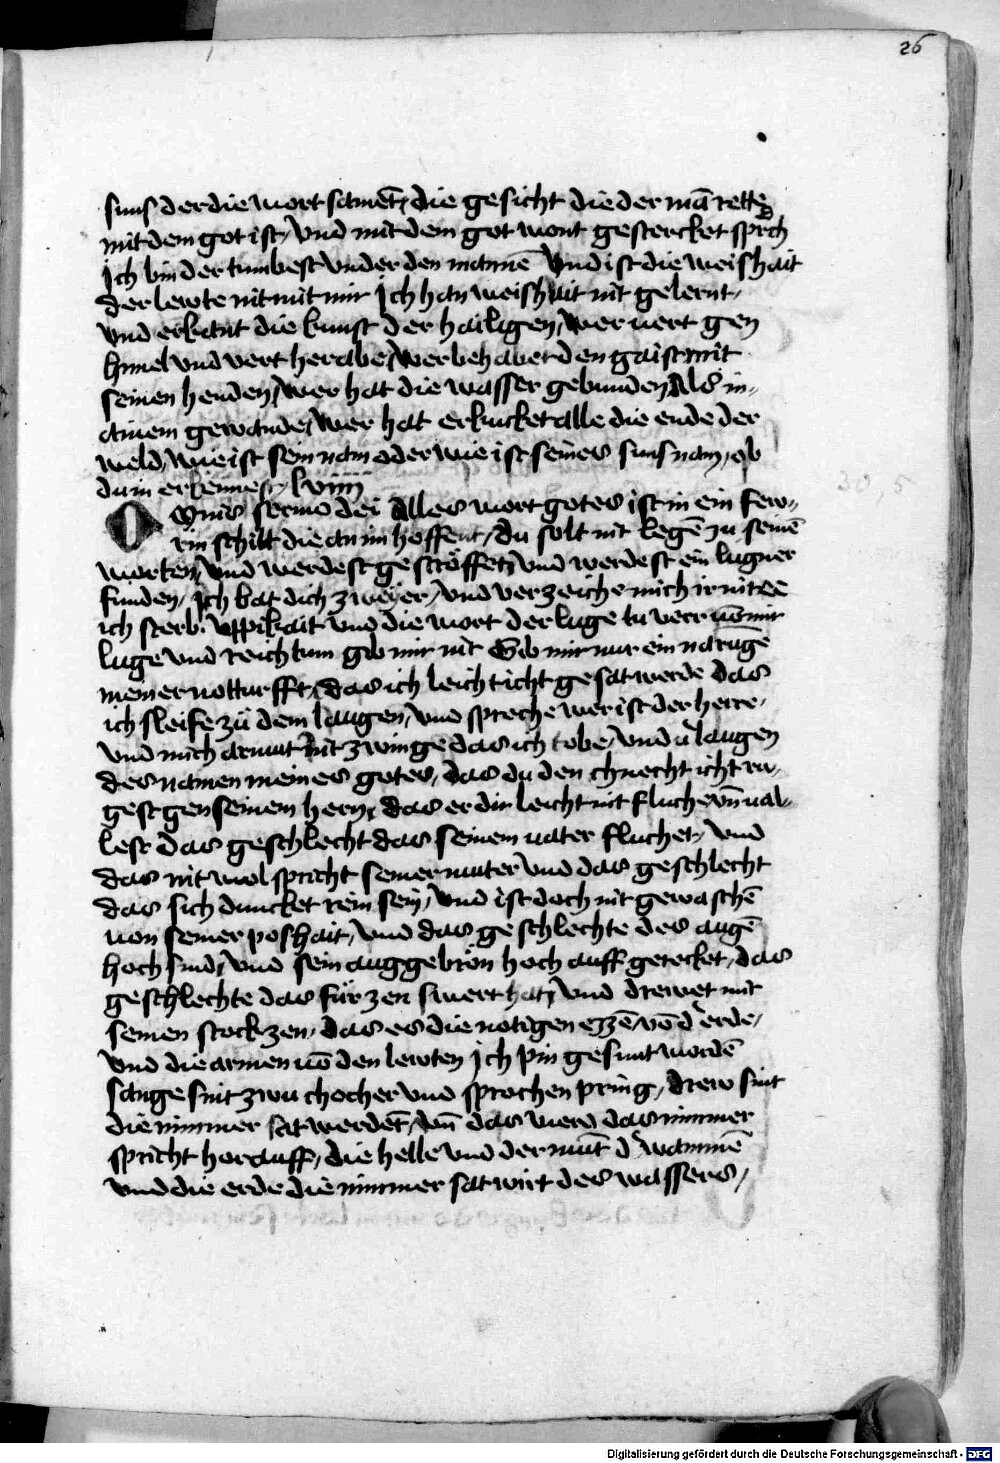 26
suns der die wort samēt, die gesicht die der mā rette
mit dem got ist, vnd mit dem got wont gestercket sprch
Ich bin der tumbest vnder den mannē Vnd ist die weishait
der lewte nit mit mir Ich han weishait nit gelernt,
vnd erkant die kunst der hailigen, wer uert gen
himel vnd vert herabe, wer behabet den gaist mit
seinen henden, wer hat die wasser gebunden Als in-
ainem gewande, wer hat erkucket alle die ende der
weld, wie ist sein nam oder wie ist seines suns nam, ob
du in erkennest, lviiij
Omnis sermo dei Alles wort gotes ist in ein few-
rin schilt die an im hoffent, du solt nit legē zu seinē
worten, vnd werdest geströffet, vnd werdest ein lugner
funden, Ich bat dich zweyer, vnd verzeiche mich ir nit ee
ich sterb. Vppikait vnd die wort der luge tu verr uō mir
luge vnd reichtum gib mir nit Gib mir nur ein narūge
meiner notturfft, das ich leicht icht gesat werde das
ich sleife zů dem laugen, vnd spreche wer ist der herre,
vnd mich armut nit zwinge das ich tobe, vnd ulaugen
des namen meines gotes, das du den chnecht icht ru-
gest gen seinem hern, das er dir leicht nit fluche vn̄ ual-
lest das geschlecht das seinem uater fluchet, vnd
das nit wol spricht seiner muter vnd das geschlecht
das sich duncket rein sey, vnd ist doch nit gewaschē
uon seiner poshait, vnd das geschlechte des augē
hoch sind, vnd sein auggebron hoch auff gerecket, das
geschlechte das für zen swert hat, vnd drewet mit
seinen stockzen, das es die notigen ezzē, vō d erde,
vnd die armen uō den lewten Ich pin gesunt wordē
sauge sint zwu chocher vnd sprochen pring, drew sint
die nimmer sat werdēt, vn̄ das vierd das nimmer
spricht horauff, die helle vnd der mūt d wammē
vnd die erde die nimmer sat wirt des wassers,
30, 5
Digitalisierung gefördert durch die Deutsche Forschungsgemeinschaft - DFG